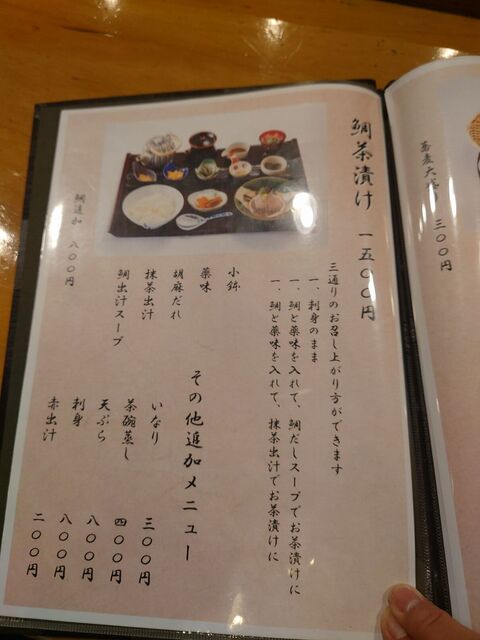 蕎麦大盛り 三〇〇円
鯛茶漬け 一五〇〇円
三通りのお召し上がり方ができます
一、刺身のまま
一、鯛と薬味を入れて、鯛だしスープでお茶漬けに
一、鯛と薬味を入れて、抹茶出汁でお茶漬けに
小鉢
薬味
胡麻だれ
抹茶出汁
鯛出汁スープ
鯛追加 八〇〇円
その他追加メニュー
いなり 三〇〇円
茶碗蒸し 四〇〇円
天ぷら 八〇〇円
刺身 八〇〇円
赤出汁 二〇〇円